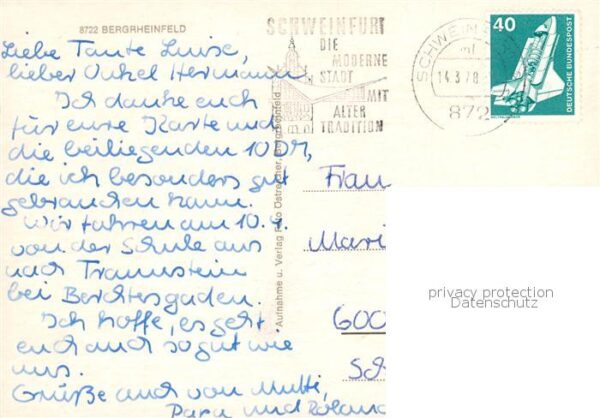 8722 BERGRHEINFELD
Liebe Tante Luise,
lieber Onkel Hermann
Ich danke euch
für eure Karte und
die beiliegenden 10 DM,
die ich besonders gut
gebrauchen kann.
Wir fahren am 10.4.
von der Schule aus
nach Traunstein
bei Berchtesgaden.
Ich hoffe, es geht
euch auch so gut wie
uns.
Grüße auch von Mutti,
Papa und Roland
Aufnahme u. Verlag Foto Ostreicher, Bergrheinfeld
SCHWEINFURT
DIE
MODERNE
STADT
MIT
ALTER
TRADITION
SCHWEINF
14.3.78
872
40
DEUTSCHE BUNDESPOST
WELTRAUMLABOR
Frau
Mari
600
Sch
privacy protection
Datenschutz